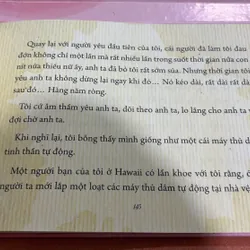 Quay lại với người yêu đầu tiên của tôi, cái người đã làm tôi đau
đớn không chỉ một lần mà rất nhiều lần trong suốt thời gian nửa con
nít nửa thiếu nữ ấy, anh ta đã bỏ tôi rất sớm sủa. Nhưng thời gian tôi
yêu anh ta không dừng lại ngay khi đó... Nó kéo dài, rất dài rất dài
sau đó... Hằng năm ròng.
Tôi cứ âm thầm yêu anh ta, dõi theo anh ta, lo lắng cho anh ta v
đợi chờ anh ta.
Khi nghĩ lại, tôi bỗng thấy mình giống như một cái máy thủ d
tinh thần tự động.
Một người bạn của tôi ở Hawaii có lần khoe với tôi rằng, ở
người ta mới lắp một loạt các máy thủ dâm tự động tại nhà vệ